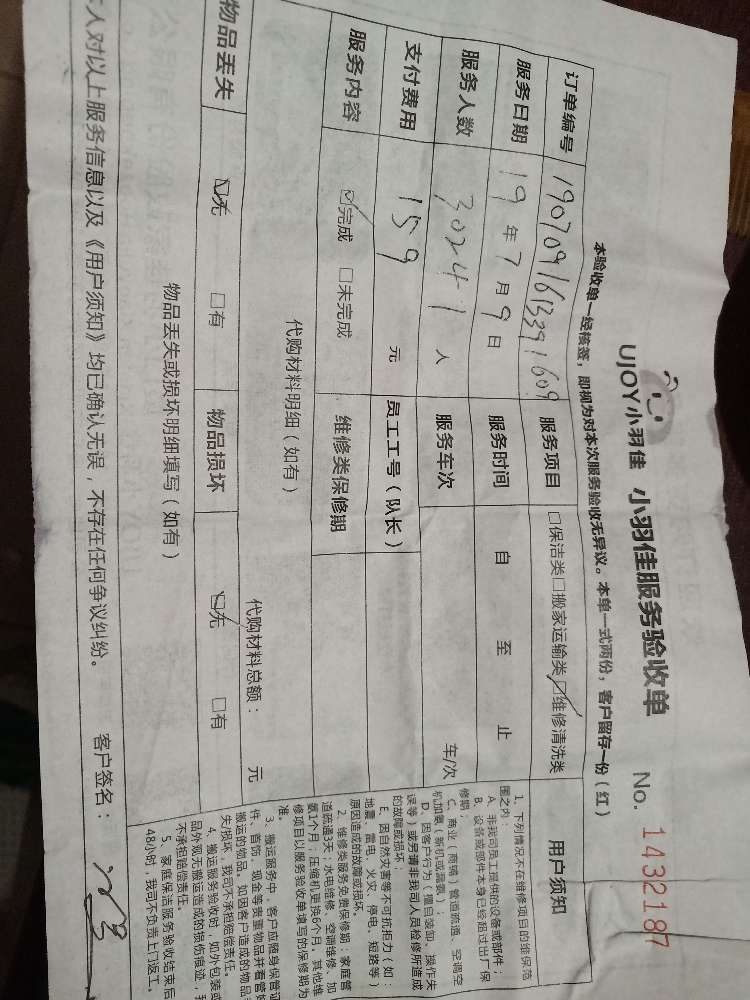 UJOY小羽佳 小羽佳服务验收单 No. 1432187
本验收单一经核签，即视为对本次服务验收无异议。本单一式两份，客户留存一份（红）
订单编号 1907091613391609 服务项目 □保洁类□搬家运输类☑维修清洗类
服务日期 19年7月9日 服务时间 自 至 止
服务人数 30241人 服务车次 车/次
支付费用 159 元 员工工号（队长）
服务内容 ☑完成 □未完成 维修类保修期
代购材料明细（如有）
代购材料总额： 元
物品丢失 ☑无 □有 物品损坏 ☑无 □有
物品丢失或损坏明细填写（如有）
人对以上服务信息以及《用户须知》均已确认无误，不存在任何争议纠纷。 客户签名：
用户须知
1、下列情况不在维修项目的维保范
围之内：
A、非我司员工提供的设备或部件；
B、设备或部件本身已经超过出厂保
修期；
C、商业（商铺）管道疏通、空调空
机加氨（新机或漏氨）；
D、因客户行为（擅自装卸、操作失
误等）或另请非我司人员检修所造成
的故障或损坏；
E、因自然灾害等不可抗拒力（如：
地震、雷电、火灾、停电、短路等）
原因造成的故障或损坏。
2、维修类服务免费保修期：家庭管
道疏通3天；水电维修、空调维修、加
氨1个月；压缩机更换6个月，其他维
修项目以服务验收单填写的保修期为
准。
3、搬运服务中，客户应随身保管证
件、首饰、现金等贵重物品并看管好
搬运的物品。如因客户造成的物品
失/损坏，我司不承担赔偿责任。
4、搬运服务验收时，如外包装或
品外观无搬运造成的损伤痕迹，我
不承担赔偿责任。
5、家庭保洁服务验收结束后
48小时，我司不负责上门返工。